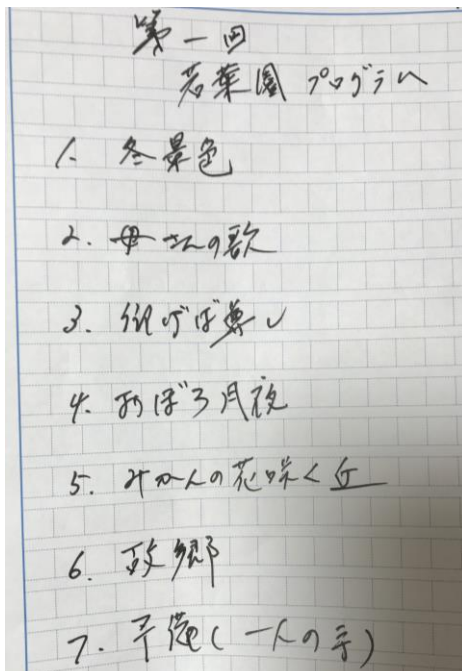 第一回
若葉園 プログラム
1. 冬景色
2. 母さんの歌
3. 仰げば尊し
4. おぼろ月夜
5. みかんの花咲く丘
6. 故郷
7. 予備(一人の手)